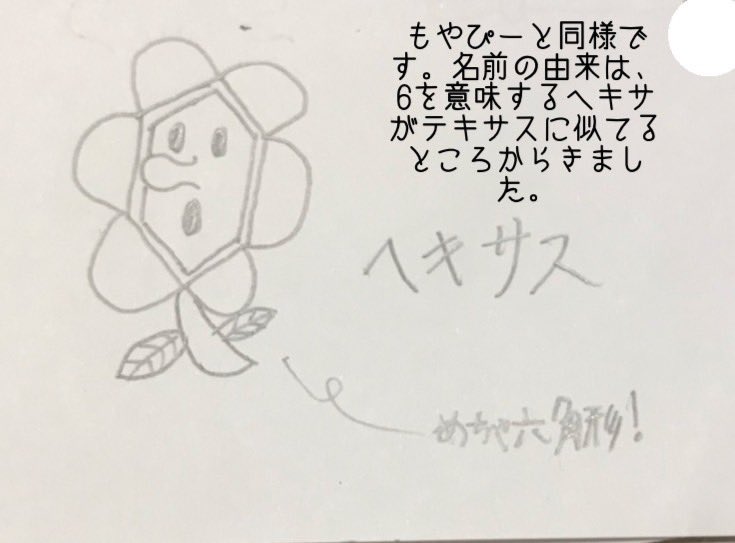 もやぴーと同様で
す。名前の由来は、
6を意味するヘキサ
がテキサスに似てる
ところからきまし
た。
ヘキサス
めちゃ六角形!